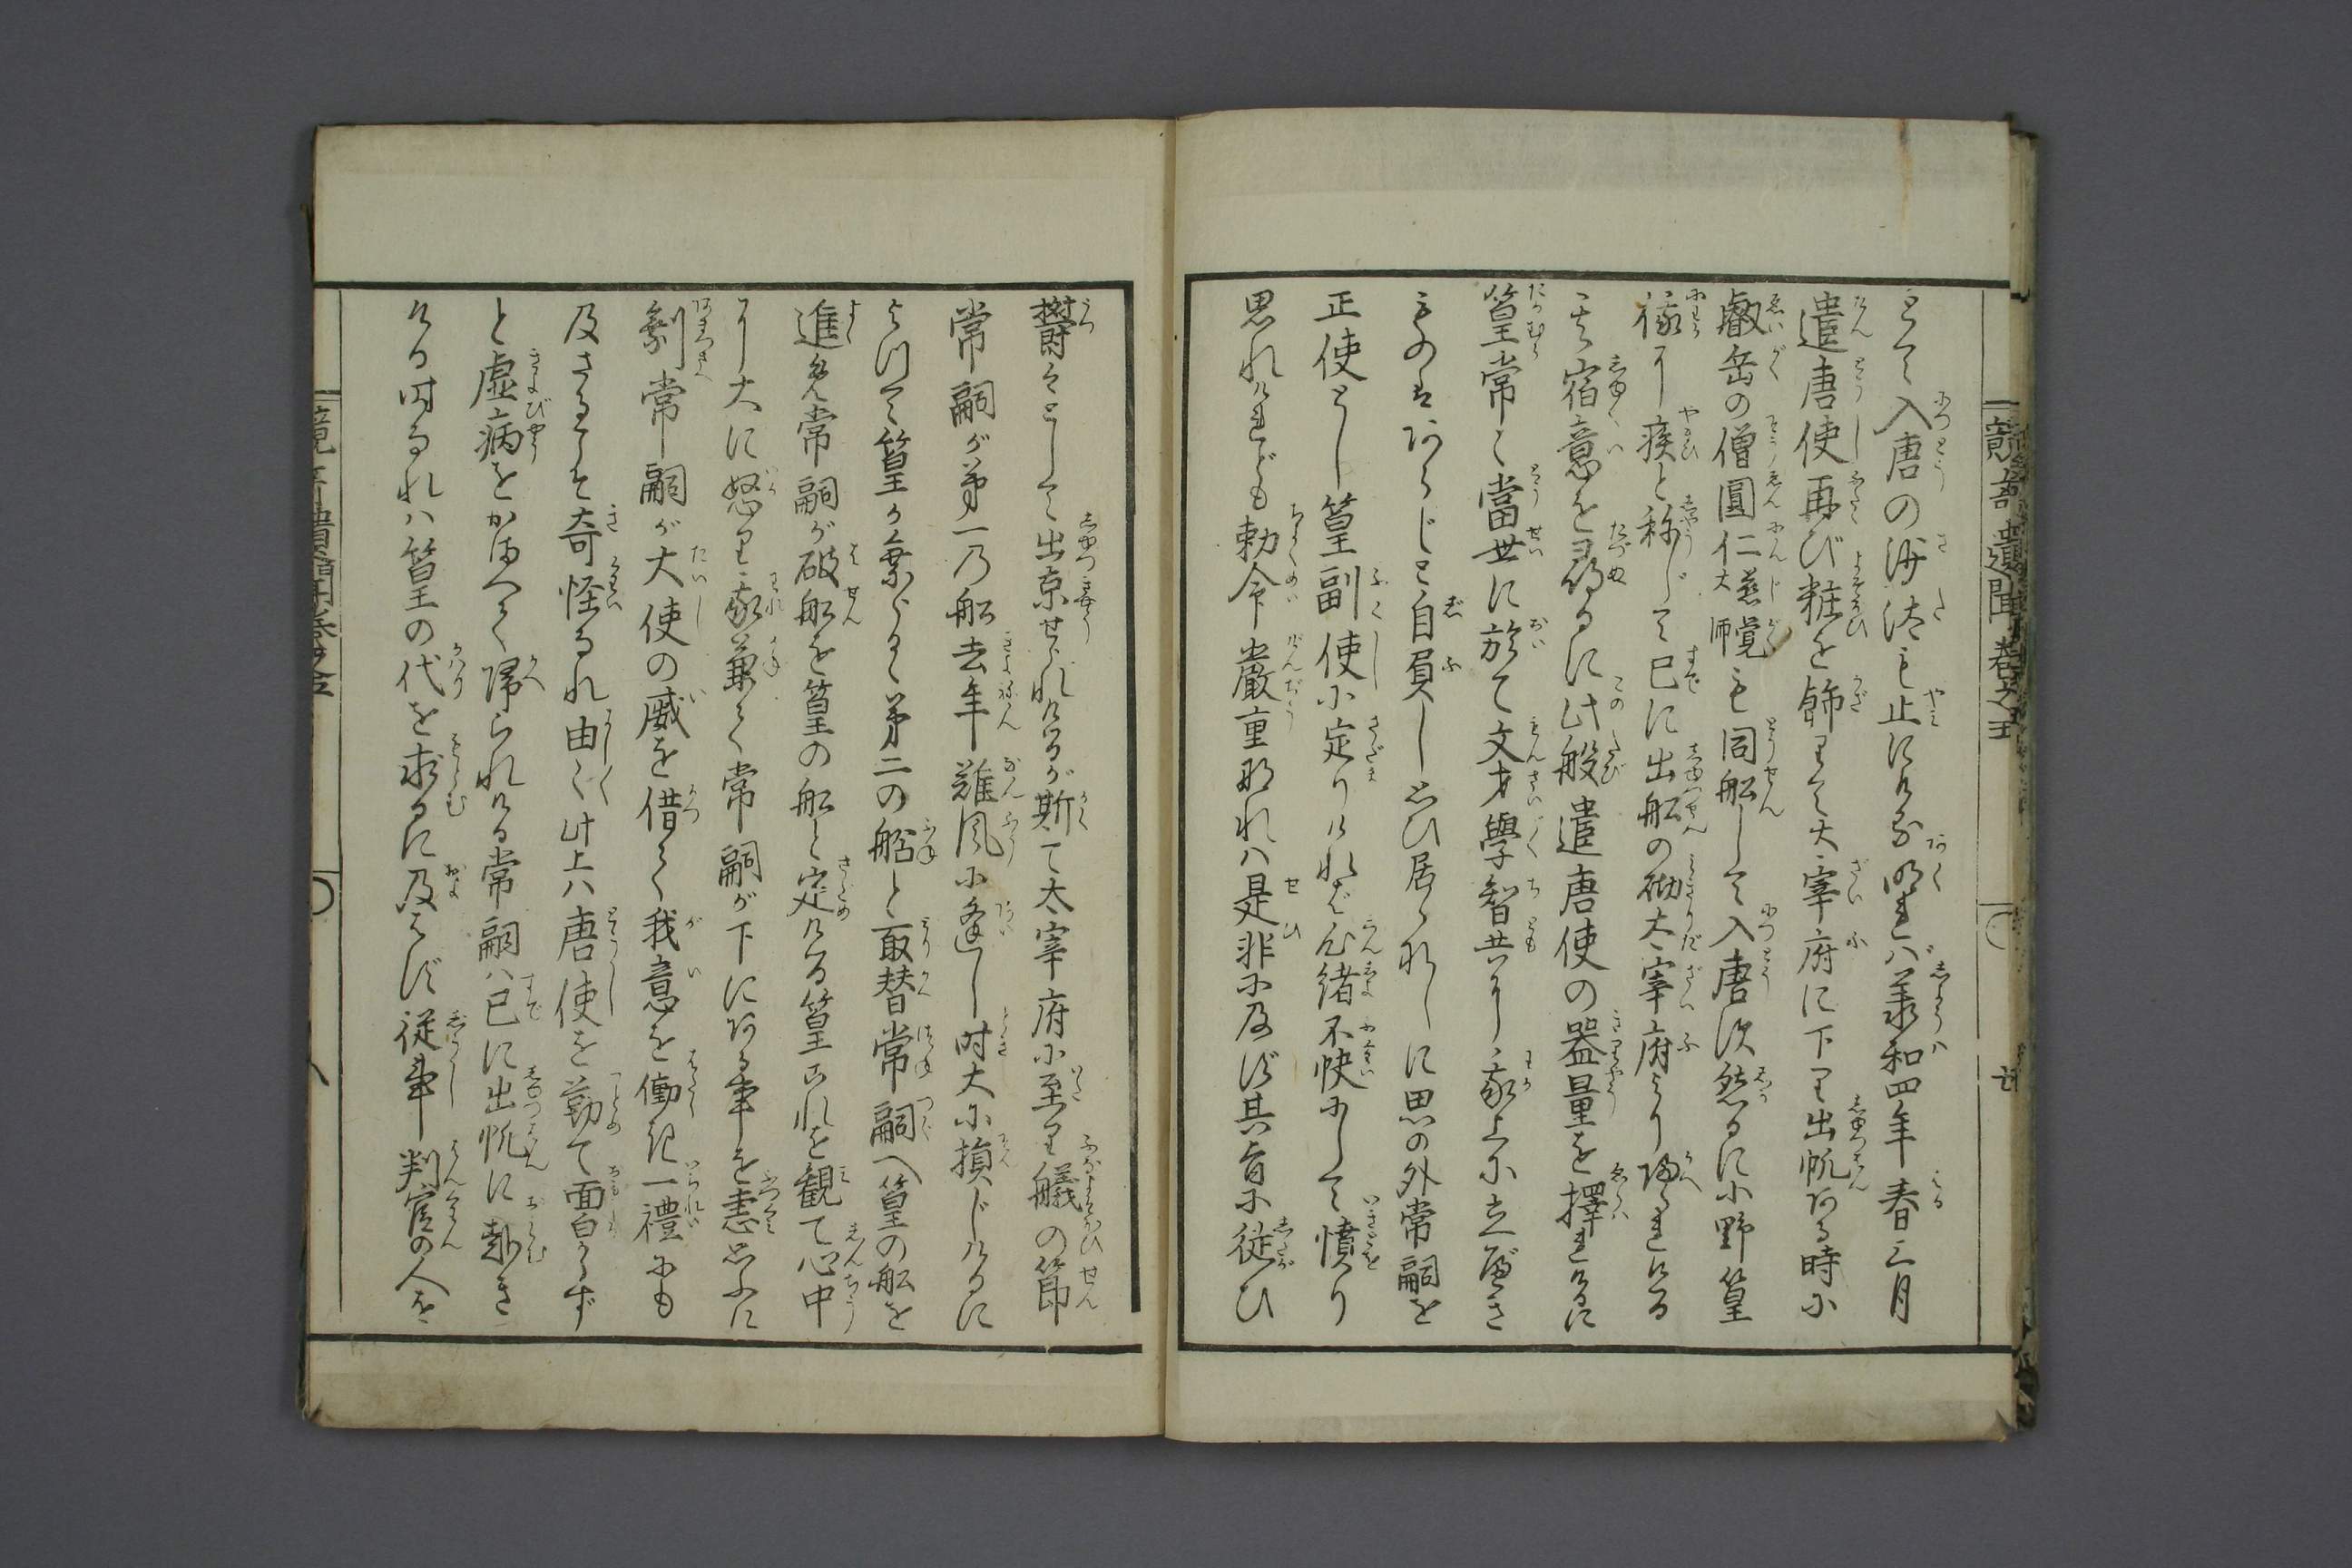 とて入唐の沙汰も止にける明れば承和四年春三月
遣唐使再び粧を餝りて大宰府に下り出帆ある時小
叡岳の僧圓仁慈覚大師も同船して入唐須然るに小野篁
俄に疾と称じて已に出船の砌太宰府より帰られける
其宿意を尋るに此般遣唐使の器量を擇れけるに
篁常に當世に於て文才學智共に我上に立べき
ものはあらじと自負し思ひ居られしに思の外常嗣を
正使とし篁副使に定りければ心緒不快にして憤り
思れけれども勅令嚴重なれハ是非に及ず其旨に従ひ
欝々として出京せられけるが斯て太宰府に至り艤の節
常嗣が第一乃船去年難風に逢し時大に損じけるに
よりて篁が乗るべき第二の船と取替常嗣へ篁の船を
進め常嗣が破船を篁の船と定ける篁これを観て心中
に大に怒り我兼て常嗣が下にある事を恚思ふに
剰常嗣が大使の威を借て我意を働き一禮にも
及ざることそ奇怪なれ由々此上ハ唐使を勤て面白からず
と虚病をかまへて帰られける常嗣ハ已に出帆に赴き
ける時なれハ篁の代を求るに及ばず従事判官の人を
競奇遺聞巻之五